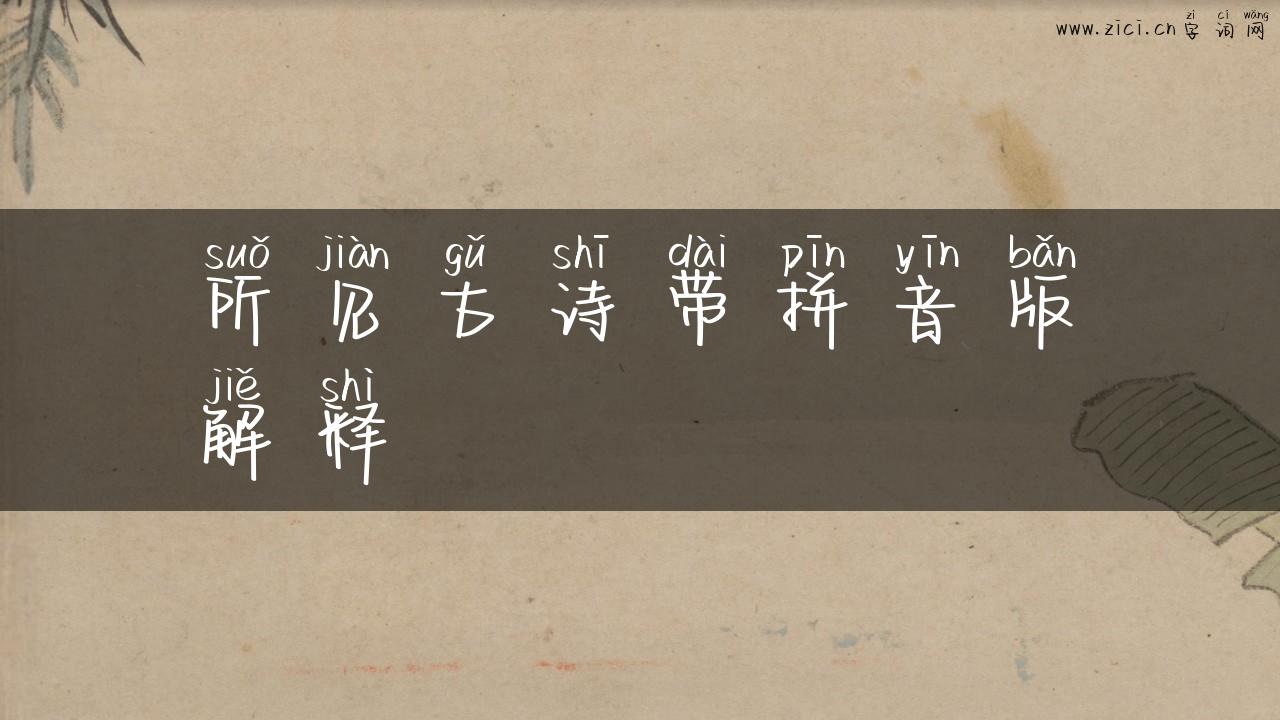 zì cí wǎng
www.zici.cn 字 词 网
suǒ jiàn gǔ shī dài pīn yīn bǎn
所 见 古 诗 带 拼 音 版
jiě shì
解 释